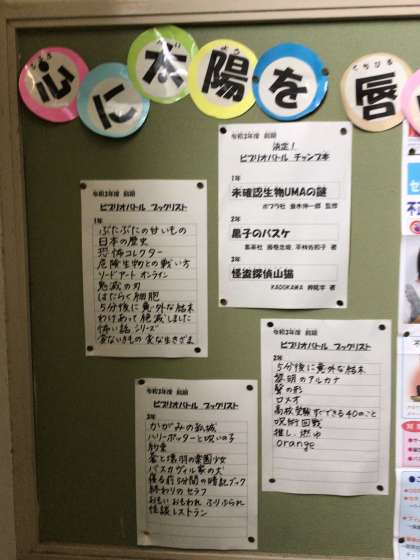 心に太陽を唇
令和3年度 前期
決定!
ビブリオバトル チャンプ本
1年
未確認生物UMAの謎
ポプラ社 並木伸一郎 監修
2年
黒子のバスケ
集英社 藤巻忠俊、平林佐和子 著
3年
怪盗探偵山猫
KADOKAWA 神永学 著
令和3年度 前期
ビブリオバトル ブックリスト
1年
ぶたぶたの甘いもの
日本の歴史
恐怖コレクター
危険生物との戦い方
ソードアート オンライン
鬼滅の刃
はたらく細胞
5分後に意外な結末
わけあって絶滅しました
怖い話シリーズ
変ないきもの 変な生きざま
令和3年度 前期
ビブリオバトル ブックリスト
2年
5分後に意外な結末
黎明のアルカナ
聲の形
ロメオ
高校受験すぐできる40のこと
呪術回戦
推し、燃ゆ
orange
令和3年度 前期
ビブリオバトル ブックリスト
3年
かがみの孤城
ハリーポッターと呪いの子
約束
蒼と壊羽の楽園少女
バスカヴィル家の犬
寝る前5分間の暗記ブック
終わりのセラフ
おもい おもわれ ふり ふられ
怪談レストラン